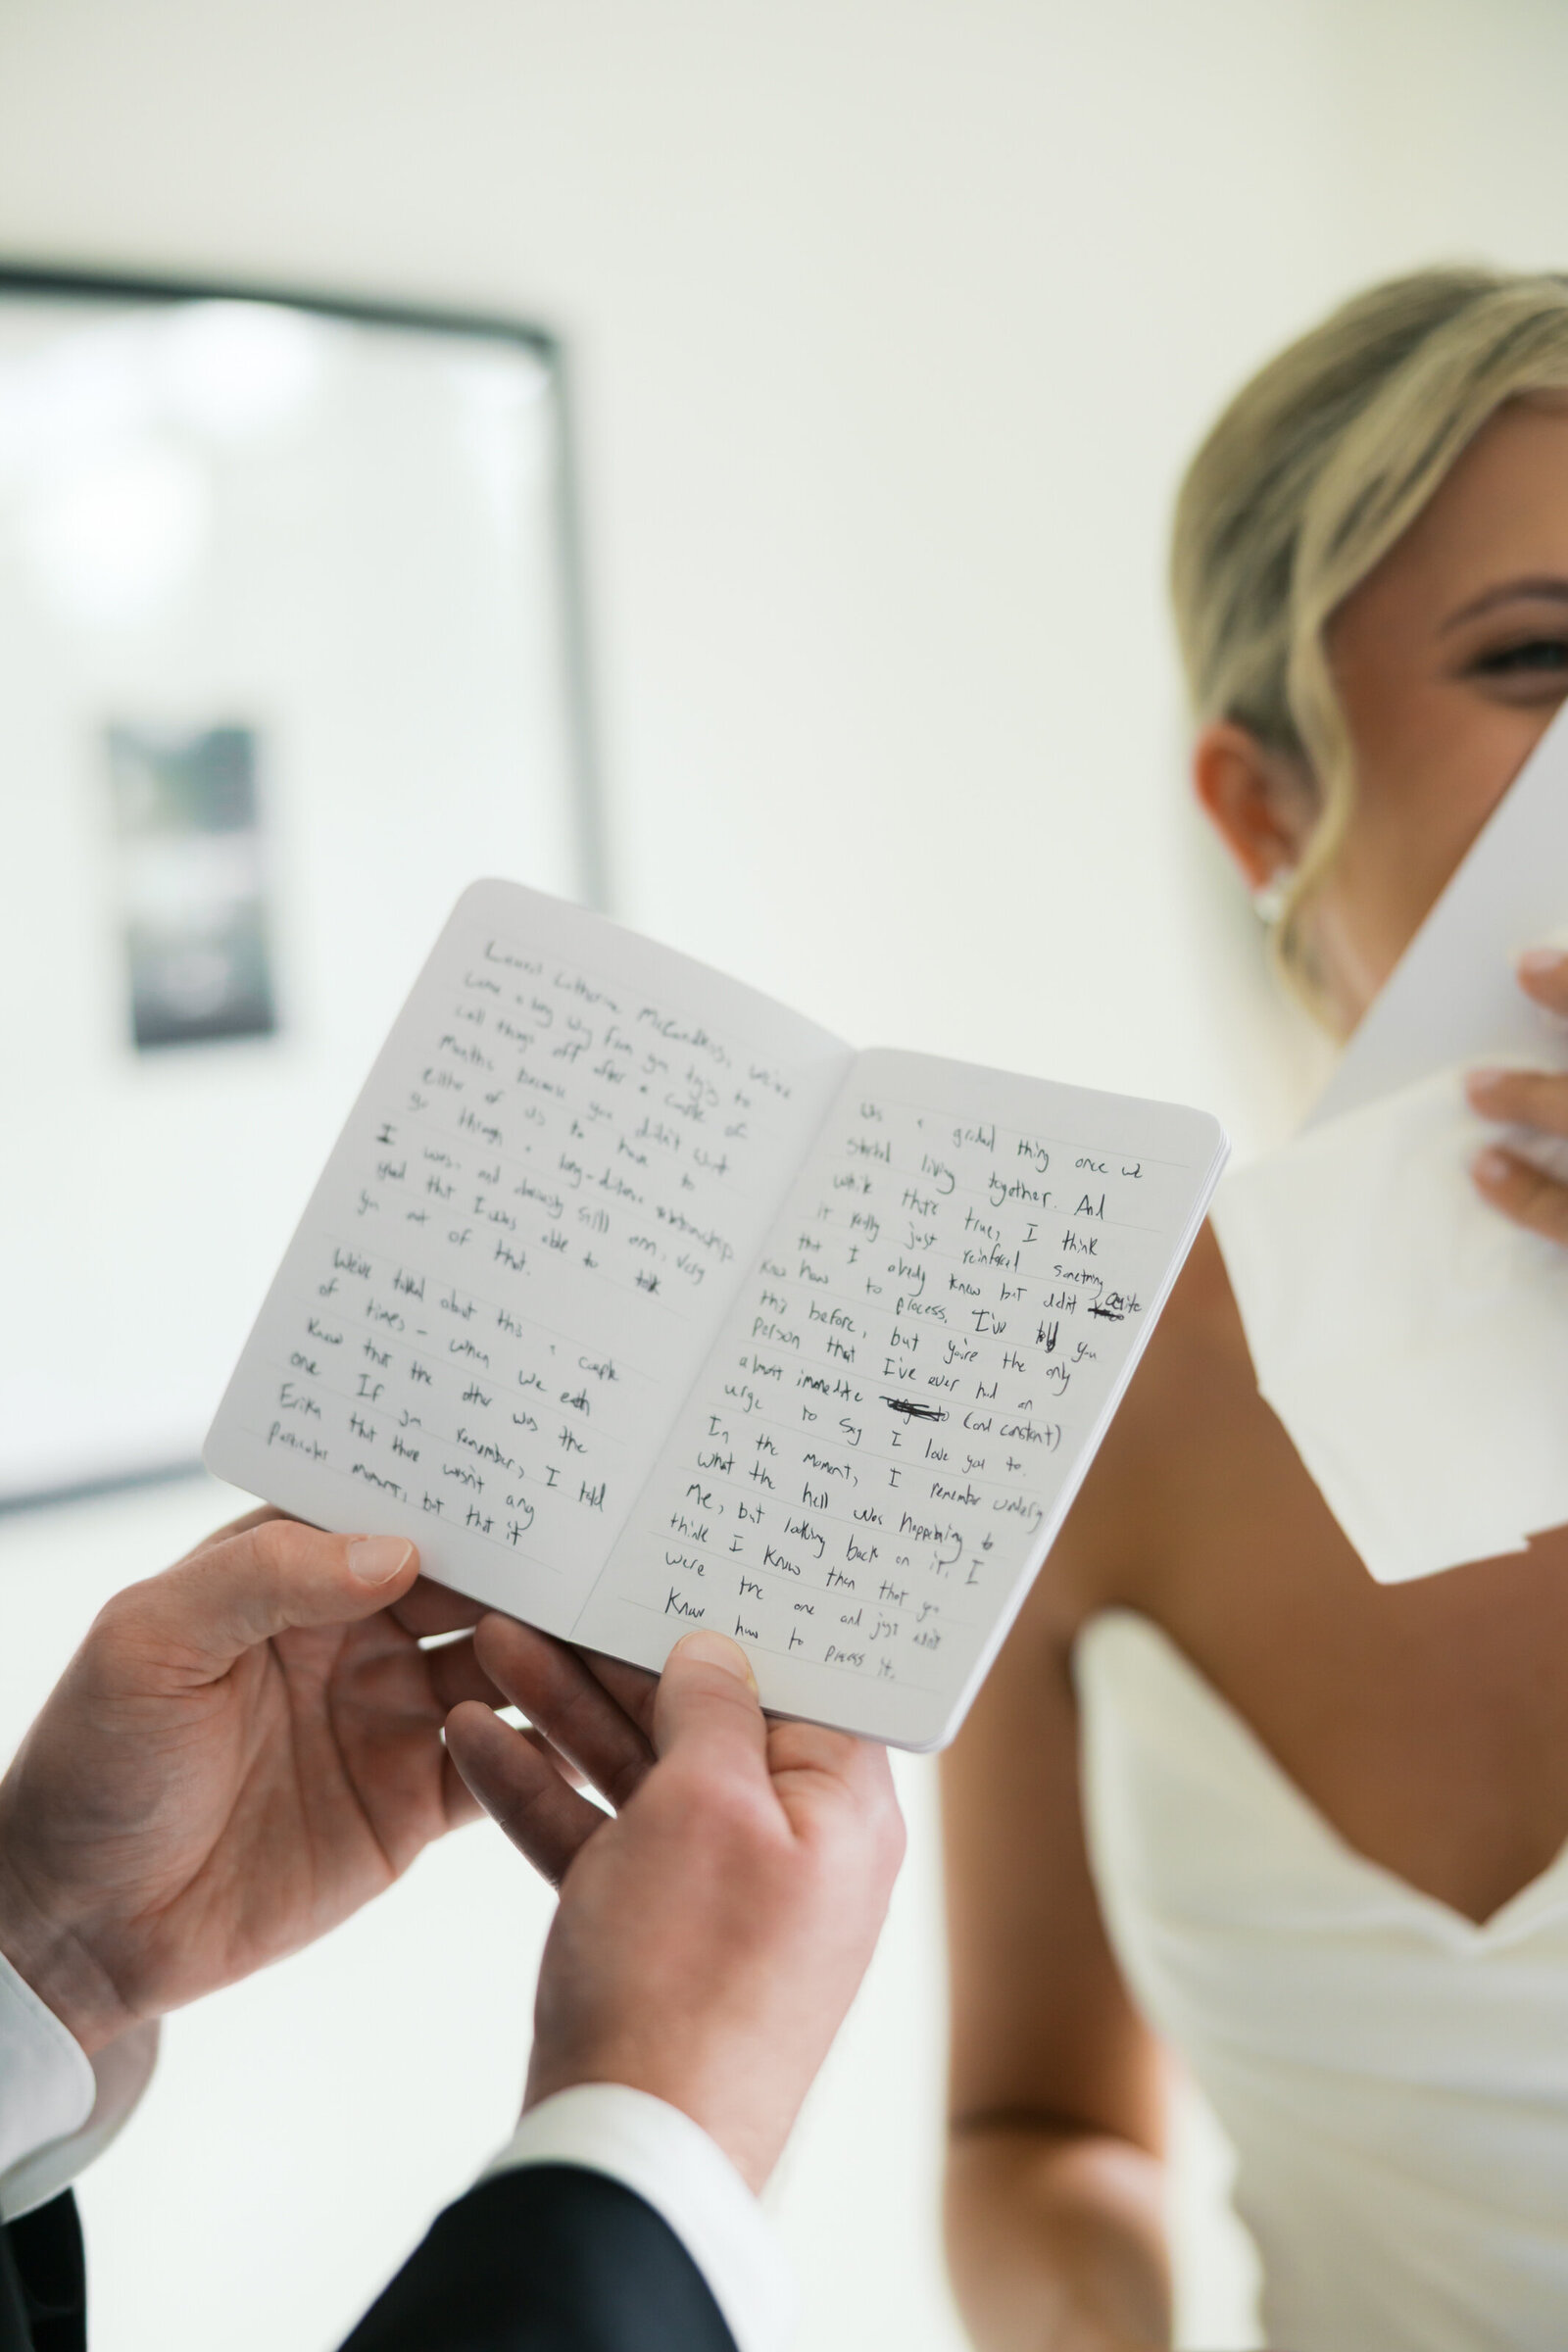 Lauren Catherine McCandless, we've
come a long way from you trying to
call things off after a couple of
months because you didn't want
either of us to have to
go through a long-distance relationship.
I was, and obviously still am, very
glad that I was able to talk
you out of that.
We've talked about this a couple
of times - when we each
knew that the other was the
one. If you remember, I told
Erika that there wasn't any
particular moment, but that it
was a gradual thing once we
started living together. And
while that's true, I think
it really just reinforced something
that I already knew but didn't quite
know how to process. I've told you
this before, but you're the only
person that I've ever had an
almost immediate (and constant)
urge to say I love you to.
In the moment, I remember
what the hell was happening to
me, but looking back on it, I
think I knew then that you
were the one and just didn't
know how to process it.